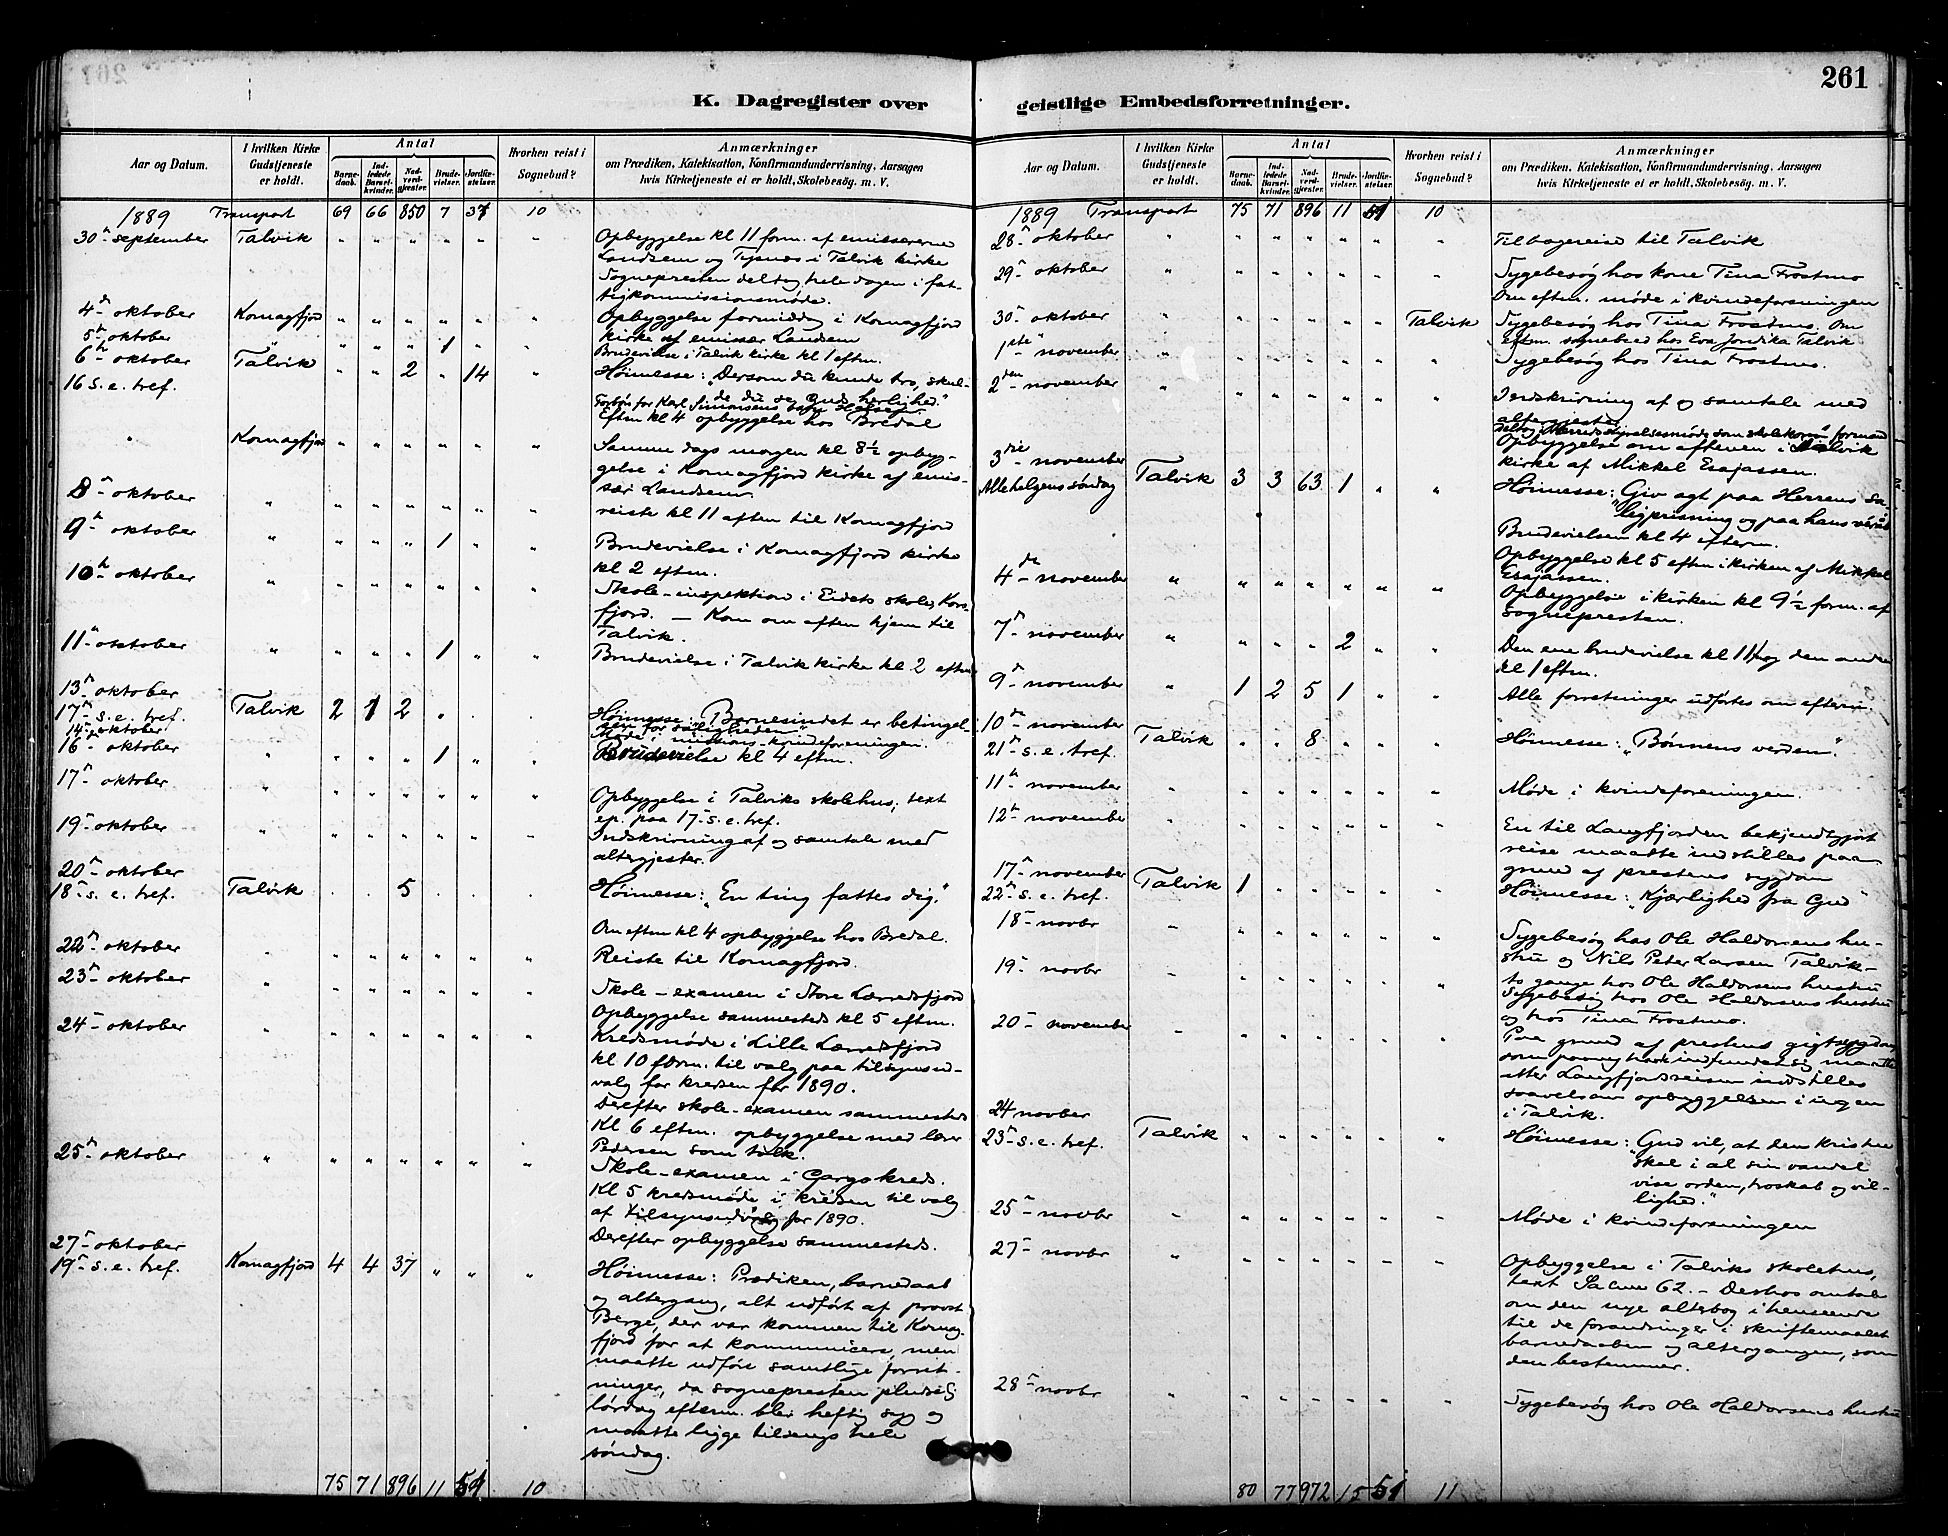 261
K. Dagregister over
geistlige Embedsforretninger.
Aar og Datum.
I hvilken Kirke Gudstjeneste er holdt.
Antal
Barne-daab.
Ind-ledede Barsel-kvinder.
Nad-verd-gjester.
Brude-vielser.
Jordfæ-stelser.
Hvorhen reist i Sognebud?
Anmærkninger
om Prædiken, Katekisation, Konfirmandundervisning, Aarsagen
hvis Kirketjeneste ei er holdt, Skolebesøg. m. V.
1889 Transport 69 66 850 7 37 10
30 september Talvik " " " " " " Opbyggelse kl 11 form. af emissererne
Landsem og Tysnes i Talvik kirke
Sognepresten deltog hele dagen i fat-
tigkommissionsmøde.
4 oktober Komagfjord " " " " " " Opbyggelse formiddg i Komagfjord
kirke af emissær Landsem
5 oktober " " " " 1 " " Brudevielse i Talvik kirke kl 1 eftm.
6 oktober Talvik " " 2 " 14 " Høimesse: "Dersom du kunde tro, skul-
16 s. e. tref. de du se Guds herlighed."
Forbøn for Karl Simonsens
Eftm kl 4 opbyggelse hos Bredal
" Komagfjord " " " " " " Samme dags morgen kl 8½ opbyg-
gelse i Komagfjord kirke af emis-
sær Landsem
8 oktober " " " " " " " reiste kl 11 eften til Komagfjord
9 oktober " " " " 1 " " Brudevielse i Komagfjord kirke
kl 2 eftm.
10 oktober " " " " " " " Skole-inspektion i Eidets skole, Kors-
fjord. — Kom om aften hjem til
Talvik.
11 oktober " " " " 1 " " Brudevielse i Talvik kirke kl 2 eftm
13 oktober
17 s. e. tref. Talvik 2 1 2 " . . Høimesse: "Barnesindet er betingel-
sen for saligheden."
14 oktober Møde i missions-kvindeforeningen.
16 oktober " " " " 1 " " Brudevielse kl 4 eftm.
17 oktober " " " " " " " Opbyggelse i Talviks skolehus; text
ep. paa 17 s. e. tref.
19 oktober " " " " " " " Indskrivning af og samtale med
altergjester.
20 oktober
18 s. e. tref. Talvik . . 5 . . . Høimesse: "En ting fattes dig."
Om eftm kl 4 opbyggelse hos Bredal.
22 oktober " " " " " " " Reiste til Komagfjord.
23 oktober " " " " " " " Skole-examen i Store Lerredsfjord
Opbyggelse sammesteds kl 5 eftm.
24 oktober " " " " " " " Kredsmøde i Lille Lerredsfjord
kl 10 form. til valg paa tilsynsud-
valg for kredsen for 1890.
Derefter skole-examen sammesteds
Kl 6 eftm. opbyggelse med lærer
Pedersen som tolk.
25 oktober " " " " " " " Skole-examen i Gargo kreds.
Kl 5 kredsmøde i kredsen til valg
af tilsynsudvalg for 1890.
Derefter opbyggelse sammesteds.
27 oktober
19 s. e. tref. Komagfjord 4 4 37 " " " Høimesse: Prædiken, barnedaab
og altergang, alt udført af provst
Berge, der var kommen til Komag-
fjord for at kommunicere, men
maatte udføre samtlige forret-
ninger, da sognepresten pludselig
lørdag efterm. blev heftig syg og
maatte ligge tilsengs hele
søndag.
75 71 896 11 51 10
Aar og Datum.
I hvilken Kirke Gudstjeneste er holdt.
Antal
Barne-daab.
Ind-ledede Barsel-kvinder.
Nad-verd-gjester.
Brude-vielser.
Jordfæ-stelser.
Hvorhen reist i Sognebud?
Anmærkninger
om Prædiken, Katekisation, Konfirmandundervisning, Aarsagen
hvis Kirketjeneste ei er holdt, Skolebesøg. m. V.
1889 Transport 75 71 896 11 51 10
28 oktober " " " " " " " Tilbagereise til Talvik
29 oktober " " " " " " " Sygebesøg hos kone Tina Frostmo
Om eftm. møde i kvindeforeningen
30 oktober " " " " " " Talvik Sygebesøg hos Tina Frostmo. Om
eftm. sognebud hos Eva Jordika Talvik
1ste november " " " " " " " Sygebesøg hos Tina Frostmo.
2den november " " " " " " " Indskrivning af og samtale med
altergjester
deltog i Herredsstyrelsesmøde som skolekom. formand
Opbyggelse om aftenen i Talvik
kirke af Mikkel Esajassen.
3die november
Allehelgens søndag Talvik 3 3 63 1 " " Høimesse: "Giv agt paa Herrens sa-
ligprisning og paa hans
Brudevielsen kl 4 efterm.
Opbyggelse kl 5 eftm i kirken af Mikkel
Esajassen.
4 november " " " " " " " Opbyggelse i kirken kl 9½ form. af
sognepresten.
7 november " " " " 2 " " Den ene brudevielse kl 11½ og den anden
kl 1 eftm.
9 november " 1 2 5 1 " " Alle forretninger udførtes om efterm.
10 november
21 s. e. tref. Talvik " " 8 " " " Høimesse: "Bønnens verden".
11 november " " " " " " " Møde i kvindeforeningen.
12 november " " " " " " " En til Langfjorden bekjendtgjort
reise maatte indstilles paa
grund af prestens sygdom
17 november
22 s. e. tref. Talvik 1 " " " " " Høimesse: "Kjærlighed fra Gud"
18 novbr " " " " " " " Sygebesøg hos Ole Haldorsens hu-
stru og Nils Peter Larsen Talvik —
to gange hos Ole Haldorsens hustru
19 novbr " " " " " " " Sygebesøg hos Ole Haldorsens hustru
og hos Tina Frostmo.
20 november " " " " " " " Paa grund af prestens gigtsygdom,
som paany indfandt sig, maatte
atter Langfjordreisen indstilles
saavelsom opbyggelsen i ugen
i Talvik.
24 novber
23 s. e. tref. Talvik " " " " " " Høimesse: "Gud vil, at den kristne
skal i al sin vandel
vise orden, troskab og vil-
lighed."
25 novbr " " " " " " " Møde i kvindeforeningen
27 novbr " " " " " " " Opbyggelse i Talviks skolehus,
text Salme 62. — Deshos omtale
om den nye alterbog i henseende
til de forandringer i skriftemaalet
barnedaaben og altergangen, som
den bestemmer.
28 novbr " " " " " " " Sygebesøg hos Ole Haldorsens hustru
80 77 972 15 51 11